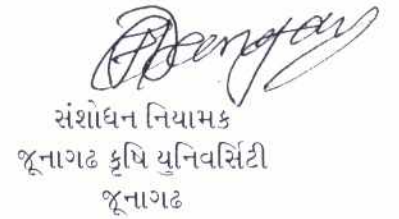 સંશોધન નિયામક
જૂનાગઢ કૃષિ યુનિવર્સિટી
જૂનાગઢ